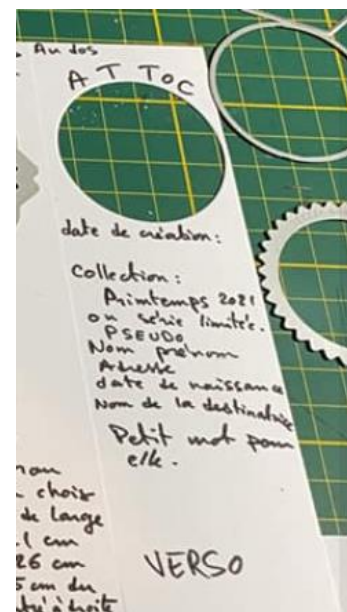 Au dos
A T TOC
date de création :
Collection :
Printemps 2021
ou série limitée.
PSEUDO
Nom prénom
Adresse
date de naissance
Nom de la destinatrice
Petit mot pour
elle.
VERSO
choix
de large
1 cm
26 cm
5 cm du
à droite